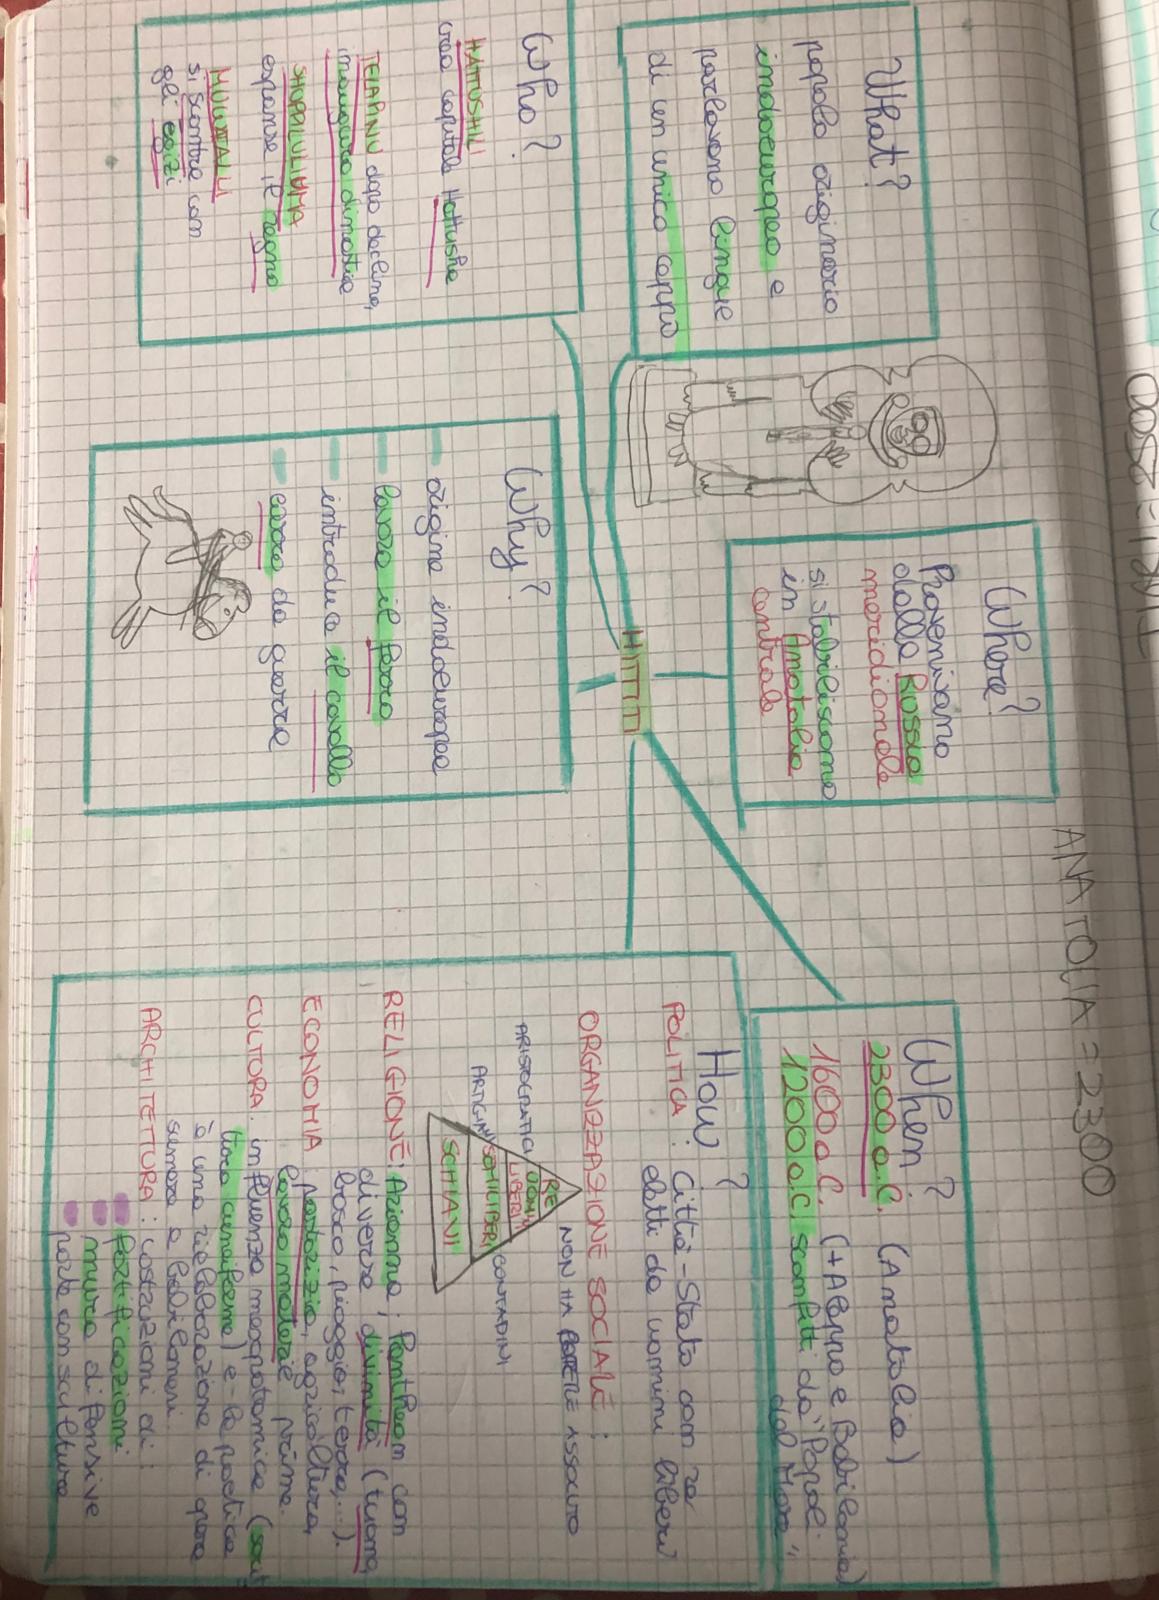 ANATOLIA = 2300
What?
popolo originario
indoeuropeo e
parlavano lingue
di un unico ceppo
Who?
HATTUSHILI
crea capitale Hattusha
TELAPINU dopo declino,
inaugura dinastia
SHOPALULIUMA
espanse il regno
MUWATALLI
si scontra con
gli egizi
Where?
Provenivano
dalla Russia
meridionale
si stabiliscono
in Anatolia
centrale
HITTITI
Why?
origine indoeuropea
lavora il ferro
introduce il cavallo
carro da guerra
When?
2300 a.C. (Anatolia)
1600 a.C. (+Aleppo e Babilonia)
1200 a.C. sconfitti da "Popoli
del Mare"
How?
POLITICA: Città-Stato con re
eletti da uomini liberi
ORGANIZZAZIONE SOCIALE:
RE NON HA POTERE ASSOLUTO
ARISTOCRATICI UOMINI LIBERI
ARTIGIANI SEMILIBERI CONTADINI
SCHIAVI
RELIGIONE: Arianna; Pantheon con
diverse divinità (tuono,
bosco, pioggia, terra, ...).
ECONOMIA: pastorizia, agricoltura,
lavoro materie prime.
CULTURA: influenza mesopotamica (scrit
tura cuneiforme) e la poetica
è una rielaborazione di opere
sumere e babilonesi.
ARCHITETTURA: costruzioni di:
fortificazioni
mura difensive
porte con sculture